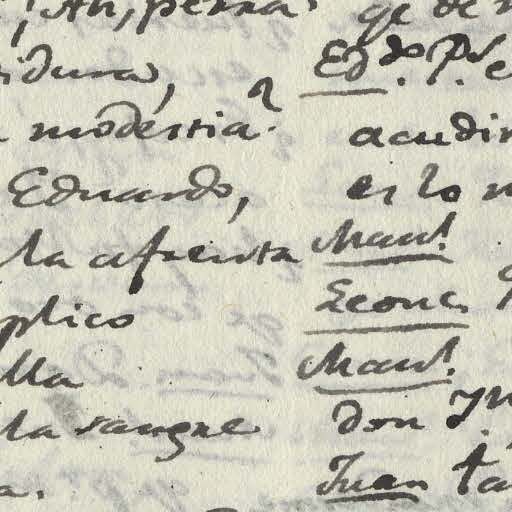 ¡Ah, perra
idura,
modestia?
Eduardo,
la afrenta
plico
lla
la sangre
a.
ge de
Ed.do P.r
acudir
es lo
Manl.
Leonc.
Manl.
don
Juan